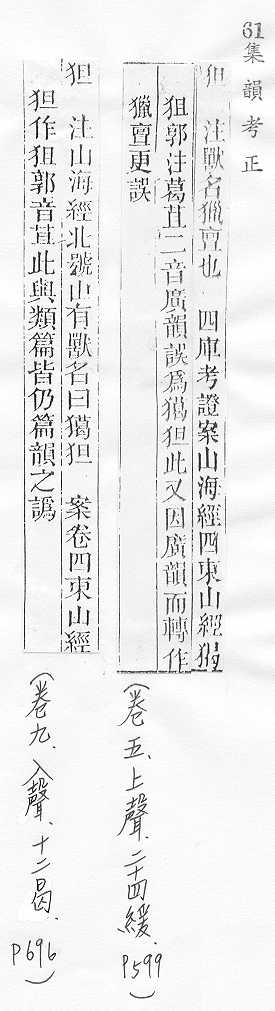 61集韻考正
狚　注獸名獵亶也　四庫考證案山海經四東山經猲
狙郭注葛苴二音廣韻誤爲獦狚此又因廣韻而轉作
獵亶更誤
(卷五、上聲、二十四緩、P599)
狚　注山海經北號山有獸名曰獦狚　案卷四東山經
狚作狙郭音苴此與類篇皆仍篇韻之譌
(卷九、入聲、十二曷、P696)